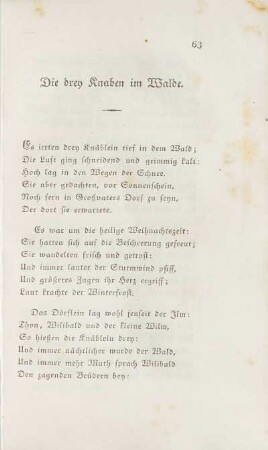 63
Die drey Knaben im Walde.
Es irrten drey Knäblein tief in dem Wald;
Die Luft ging schneidend und grimmig kalt:
Hoch lag in den Wegen der Schnee.
Sie aber gedachten, vor Sonnenschein,
Noch fern in Großvaters Dorf zu seyn,
Der dort sie erwartete.
Es war um die heilige Weihnachtszeit:
Sie hatten sich auf die Bescherung gefreut;
Sie wandelten frisch und getrost:
Und immer lauter der Sturmwind pfiff,
Und größeres Zagen ihr Herz ergriff;
Laut krachte der Winterfrost.
Das Dörflein lag wohl jenseit der Ilm:
Thon, Wilibald und der kleine Wilm,
So hießen die Knäblein drey:
Und immer nächtlicher wurde der Wald,
Und immer mehr Muth sprach Wilibald
Den zagenden Brüdern bey: